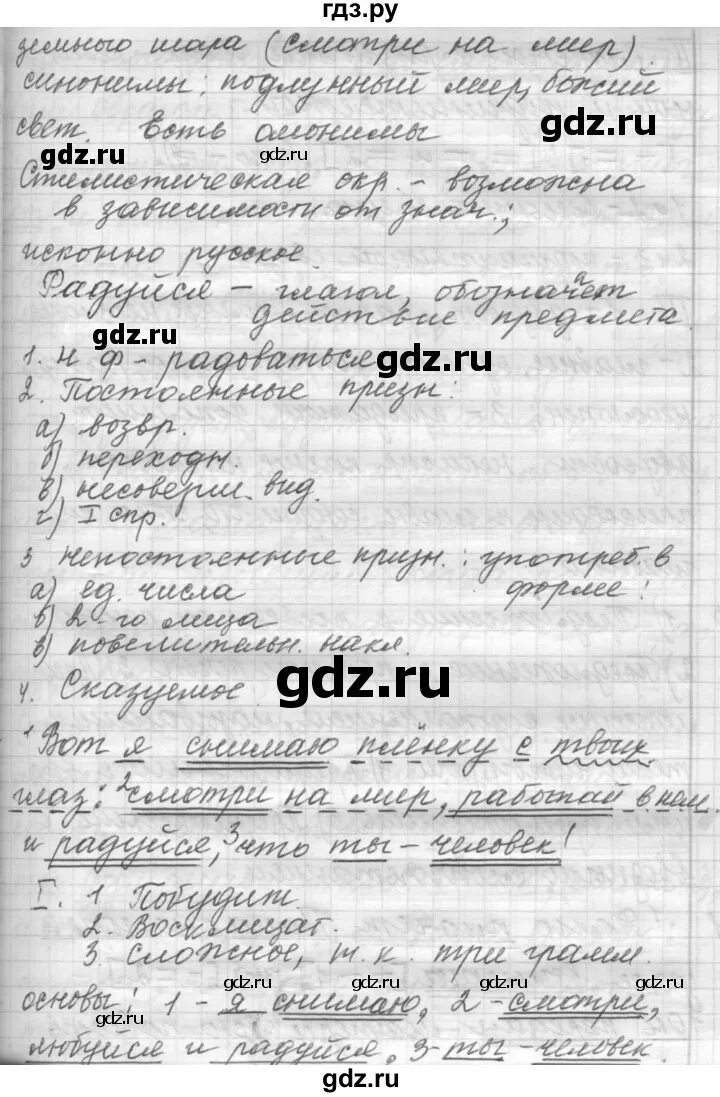 гдз.ру
земного шара (смотри на мир)
синонимы: подлунный мир, божий
свет. Есть омонимы
gdz.ru gdz.ru gdz.ru
Стилистическая окр. - возможна
в зависимости от знач.;
исконно русское
gdz.ru
Радуйся – глагол, обозначает
действие предмета.
gdz.ru
1. н. ф – радоваться
gdz.ru
2. Постоянные призн:
а) возвр.
б) переходн.
gdz.ru gdz.ru
в) несоверш. вид.
г) I спр.
gdz.ru
3 непостоянные призн.: употреб. в
форме:
а) ед. числа
в) 2-го лица
gdz.ru gdz.ru
в) повелительн. накл.
4. Сказуемое
gdz.ru
1 Вот я снимаю плёнку с твоих
gdz.ru
глаз: 2 смотри на мир, работай в нем
и радуйся, 3 что ты – человек!
gdz.ru gdz.ru
I. 1 Побудит.
2. Восклицат.
3. сложное, т. к. три грамм.
gdz.ru gdz.ru gdz.ru gdz.ru
основы: 1 - я снимаю, 2 - смотри,
gdz.ru
любуйся и радуйся, 3- ты - человек.
gdz.ru gdz.ru gdz.ru
gdz.ru